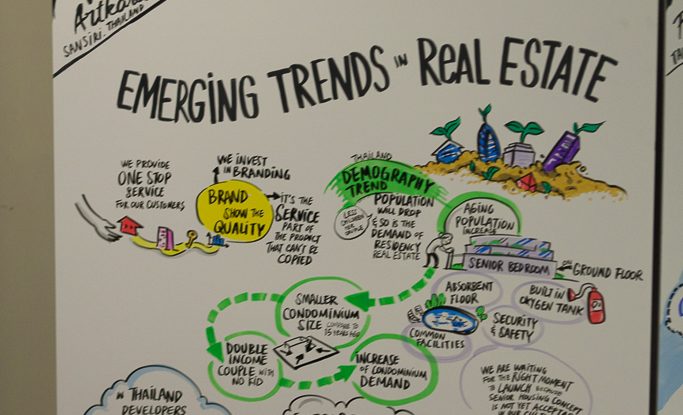 Artka
SANSIRI, THAILAND
EMERGING TRENDS IN REAL ESTATE
WE PROVIDE
ONE STOP
SERVICE
FOR OUR CUSTOMERS
WE INVEST
IN BRANDING
BRAND
SHOW THE
QUALITY
IT'S THE
SERVICE
PART OF
THE PRODUCT
THAT CAN'T BE
COPIED
THAILAND
DEMOGRAPHY
TREND
LESS
CHILDREN
PER
COUPLE
POPULATION
WILL DROP
& SO IS THE
DEMAND OF
RESIDENCY
REAL ESTATE
AGING
POPULATION
INCREASE
SENIOR BEDROOM
ON GROUND FLOOR
ABSORBENT
FLOOR
BUILT IN
OXYGEN TANK
COMMON
FACILITIES
SECURITY
& SAFETY
SMALLER
CONDOMINIUM
SIZE COMPARE TO
15 YEARS AGO
DOUBLE
INCOME
COUPLE WITH
NO KID
INCREASE
OF CONDOMINIUM
DEMAND
WE ARE WAITING
FOR THE RIGHT MOMENT
TO LAUNCH BECAUSE
SENIOR HOUSING CONCEPT
IS NOT YET ACCEPTED
IN OUR
IN THAILAND
DEVELOPERS